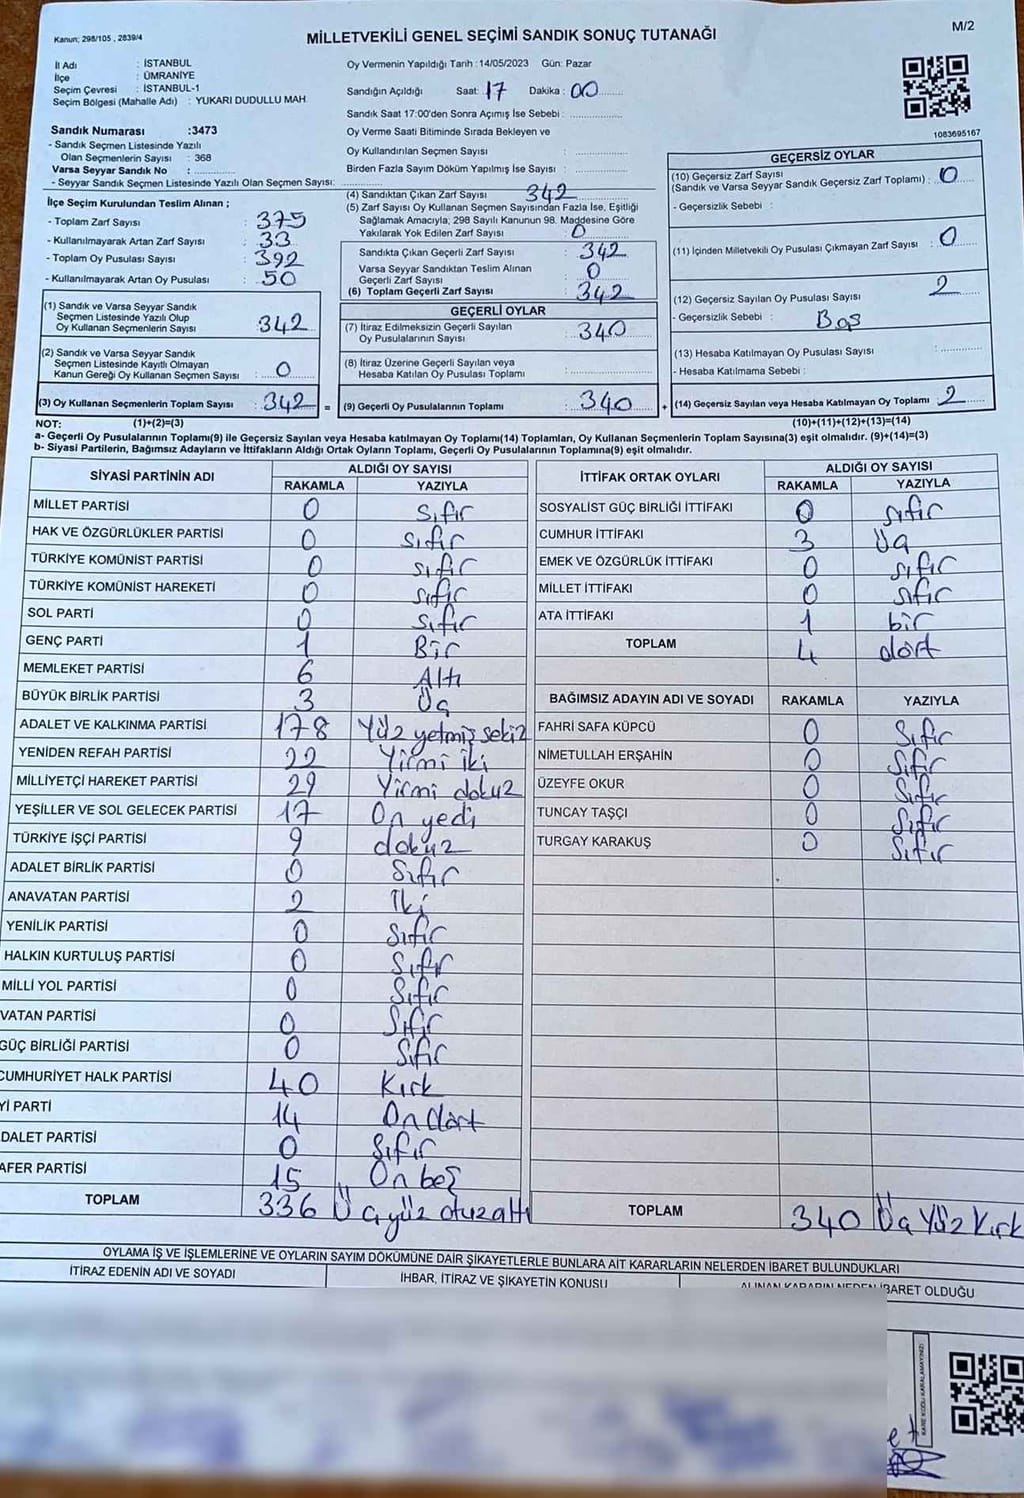 Kanun: 298/105 , 2839/4
MİLLETVEKİLİ GENEL SEÇİMİ SANDIK SONUÇ TUTANAĞI
M/2
İl Adı : İSTANBUL
İlçe : ÜMRANİYE
Seçim Çevresi : İSTANBUL-1
Seçim Bölgesi (Mahalle Adı) : YUKARI DUDULLU MAH
Sandık Numarası :3473
- Sandık Seçmen Listesinde Yazılı
Olan Seçmenlerin Sayısı : 368
Varsa Seyyar Sandık No :
- Seyyar Sandık Seçmen Listesinde Yazılı Olan Seçmen Sayısı:
Oy Vermenin Yapıldığı Tarih :14/05/2023 Gün: Pazar
Sandığın Açıldığı Saat: 17 Dakika : 00
Sandık Saat 17:00'den Sonra Açımış İse Sebebi :
Oy Verme Saati Bitiminde Sırada Bekleyen ve
Oy Kullandırılan Seçmen Sayısı :
Birden Fazla Sayım Döküm Yapılmış İse Sayısı :
1083695167
İlçe Seçim Kurulundan Teslim Alınan ;
- Toplam Zarf Sayısı : 375
- Kullanılmayarak Artan Zarf Sayısı : 33
- Toplam Oy Pusulası Sayısı : 392
- Kullanılmayarak Artan Oy Pusulası : 50
(1) Sandık ve Varsa Seyyar Sandık
Seçmen Listesinde Yazılı Olup
Oy Kullanan Seçmenlerin Sayısı : 342
(2) Sandık ve Varsa Seyyar Sandık
Seçmen Listesinde Kayıtlı Olmayan
Kanun Gereği Oy Kullanan Seçmen Sayısı : 0
(3) Oy Kullanan Seçmenlerin Toplam Sayısı : 342 =
(4) Sandıktan Çıkan Zarf Sayısı 342
(5) Zarf Sayısı Oy Kullanan Seçmen Sayısından Fazla İse, Eşitliği
Sağlamak Amacıyla; 298 Sayılı Kanunun 98. Maddesine Göre
Yakılarak Yok Edilen Zarf Sayısı : 0
Sandıkta Çıkan Geçerli Zarf Sayısı : 342
Varsa Seyyar Sandıktan Teslim Alınan
Geçerli Zarf Sayısı : 0
(6) Toplam Geçerli Zarf Sayısı : 342
GEÇERLİ OYLAR
(7) İtiraz Edilmeksizin Geçerli Sayılan
Oy Pusulalarının Sayısı : 340
(8) İtiraz Üzerine Geçerli Sayılan veya
Hesaba Katılan Oy Pusulası Toplamı :
(9) Geçerli Oy Pusulalarının Toplamı : 340 +
GEÇERSİZ OYLAR
(10) Geçersiz Zarf Sayısı
(Sandık ve Varsa Seyyar Sandık Geçersiz Zarf Toplamı) : 0
- Geçersizlik Sebebi :
(11) İçinden Milletvekili Oy Pusulası Çıkmayan Zarf Sayısı : 0
(12) Geçersiz Sayılan Oy Pusulası Sayısı : 2
- Geçersizlik Sebebi : Boş
(13) Hesaba Katılmayan Oy Pusulası Sayısı :
- Hesaba Katılmama Sebebi :
(14) Geçersiz Sayılan veya Hesaba Katılmayan Oy Toplamı : 2
NOT: (1)+(2)=(3)
(10)+(11)+(12)+(13)=(14)
a- Geçerli Oy Pusulalarının Toplamı(9) ile Geçersiz Sayılan veya Hesaba katılmayan Oy Toplamı(14) Toplamları, Oy Kullanan Seçmenlerin Toplam Sayısına(3) eşit olmalıdır. (9)+(14)=(3)
b- Siyasi Partilerin, Bağımsız Adayların ve İttifakların Aldığı Ortak Oyların Toplamı, Geçerli Oy Pusulalarının Toplamına(9) eşit olmalıdır.
SİYASİ PARTİNİN ADI ALDIĞI OY SAYISI
RAKAMLA YAZIYLA
MİLLET PARTİSİ 0 Sıfır
HAK VE ÖZGÜRLÜKLER PARTİSİ 0 sıfır
TÜRKİYE KOMÜNİST PARTİSİ 0 sıfır
TÜRKİYE KOMÜNİST HAREKETİ 0 sıfır
SOL PARTİ 0 sıfır
GENÇ PARTİ 1 Bir
MEMLEKET PARTİSİ 6 Altı
BÜYÜK BİRLİK PARTİSİ 3 Üç
ADALET VE KALKINMA PARTİSİ 178 Yüz yetmiş sekiz
YENİDEN REFAH PARTİSİ 22 Yirmi iki
MİLLİYETÇİ HAREKET PARTİSİ 29 Yirmi dokuz
YEŞİLLER VE SOL GELECEK PARTİSİ 17 On yedi
TÜRKİYE İŞÇİ PARTİSİ 9 dokuz
ADALET BİRLİK PARTİSİ 0 Sıfır
ANAVATAN PARTİSİ 2 İki
YENİLİK PARTİSİ 0 Sıfır
HALKIN KURTULUŞ PARTİSİ 0 Sıfır
MİLLİ YOL PARTİSİ 0 Sıfır
VATAN PARTİSİ 0 Sıfır
GÜÇ BİRLİĞİ PARTİSİ 0 Sıfır
CUMHURİYET HALK PARTİSİ 40 Kırk
Yİ PARTİ 14 On dört
DALET PARTİSİ 0 Sıfır
AFER PARTİSİ 15 On beş
TOPLAM 336 Üç yüz otuzaltı
İTTİFAK ORTAK OYLARI ALDIĞI OY SAYISI
RAKAMLA YAZIYLA
SOSYALİST GÜÇ BİRLİĞİ İTTİFAKI 0 sıfır
CUMHUR İTTİFAKI 3 Üç
EMEK VE ÖZGÜRLÜK İTTİFAKI 0 sıfır
MİLLET İTTİFAKI 0 sıfır
ATA İTTİFAKI 1 bir
TOPLAM 4 dört
BAĞIMSIZ ADAYIN ADI VE SOYADI RAKAMLA YAZIYLA
FAHRİ SAFA KÜPCÜ 0 Sıfır
NİMETULLAH ERŞAHİN 0 Sıfır
ÜZEYFE OKUR 0 Sıfır
TUNCAY TAŞÇI 0 Sıfır
TURGAY KARAKUŞ 0 Sıfır
TOPLAM 340 Üç Yüz Kırk
OYLAMA İŞ VE İŞLEMLERİNE VE OYLARIN SAYIM DÖKÜMÜNE DAİR ŞİKAYETLERLE BUNLARA AİT KARARLARIN NELERDEN İBARET BULUNDUKLARI
İTİRAZ EDENİN ADI VE SOYADI
İHBAR, İTİRAZ VE ŞİKAYETİN KONUSU
ALINAN KARARIN NEDEN İBARET OLDUĞU
KARE KODU KARALAMAYINIZ!